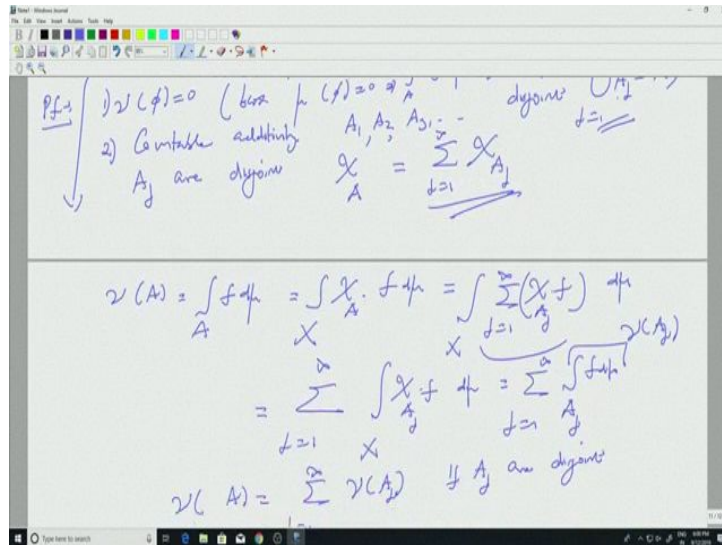 Note1 - Windows Journal
File Edit View Insert Actions Tools Help
Pf:- 1) ν(ϕ)=0 (bcoz μ(ϕ)=0 ⇒ ∫_A disjoint ⋃_{j=1} A_j
2) Countable additivity A_1, A_2, A_3, - -
A_j are disjoint χ_A = ∑_{j=1}^∞ χ_{A_j}
ν(A) = ∫_A f dμ = ∫_X χ_A · f dμ = ∫_X ∑_{j=1}^∞ (χ_{A_j} f) dμ
= ∑_{j=1}^∞ ∫_X χ_{A_j} f dμ = ∑_{j=1}^∞ ∫_{A_j} f dμ ν(A_j)
ν(A) = ∑_{j=1}^∞ ν(A_j) if A_j are disjoint
Type here to search